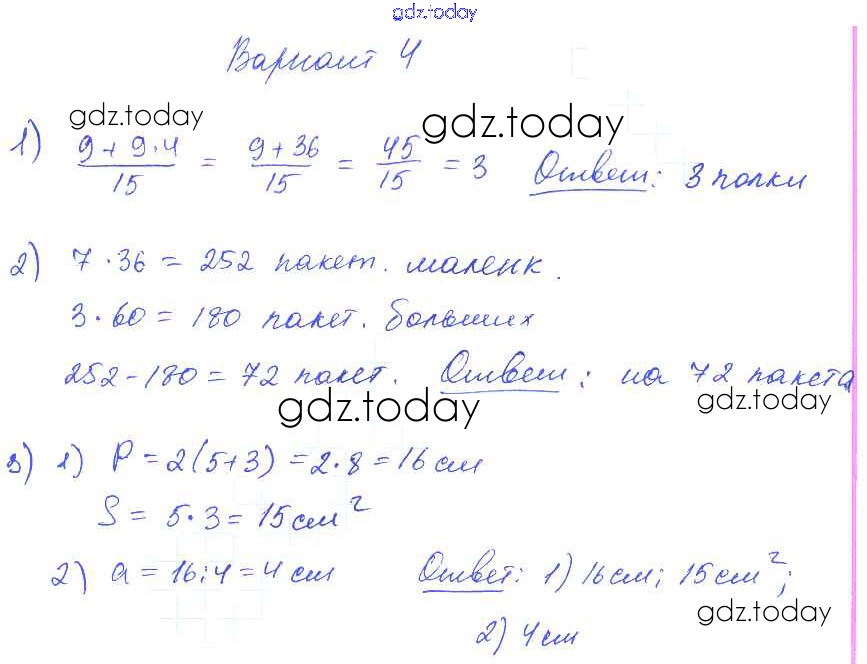 gdz.today
Вариант 4
gdz.today gdz.today
1) (9+9·4)/15 = (9+36)/15 = 45/15 = 3 Ответ: 3 полки
2) 7·36 = 252 пакет. маленк.
3·60 = 180 пакет. больших
252-180 = 72 пакет. Ответ: на 72 пакета
gdz.today gdz.today
3) 1) P = 2(5+3) = 2·8 = 16 см
S = 5·3 = 15 см²
2) a = 16:4 = 4 см Ответ: 1) 16 см; 15 см²;
gdz.today
2) 4 см